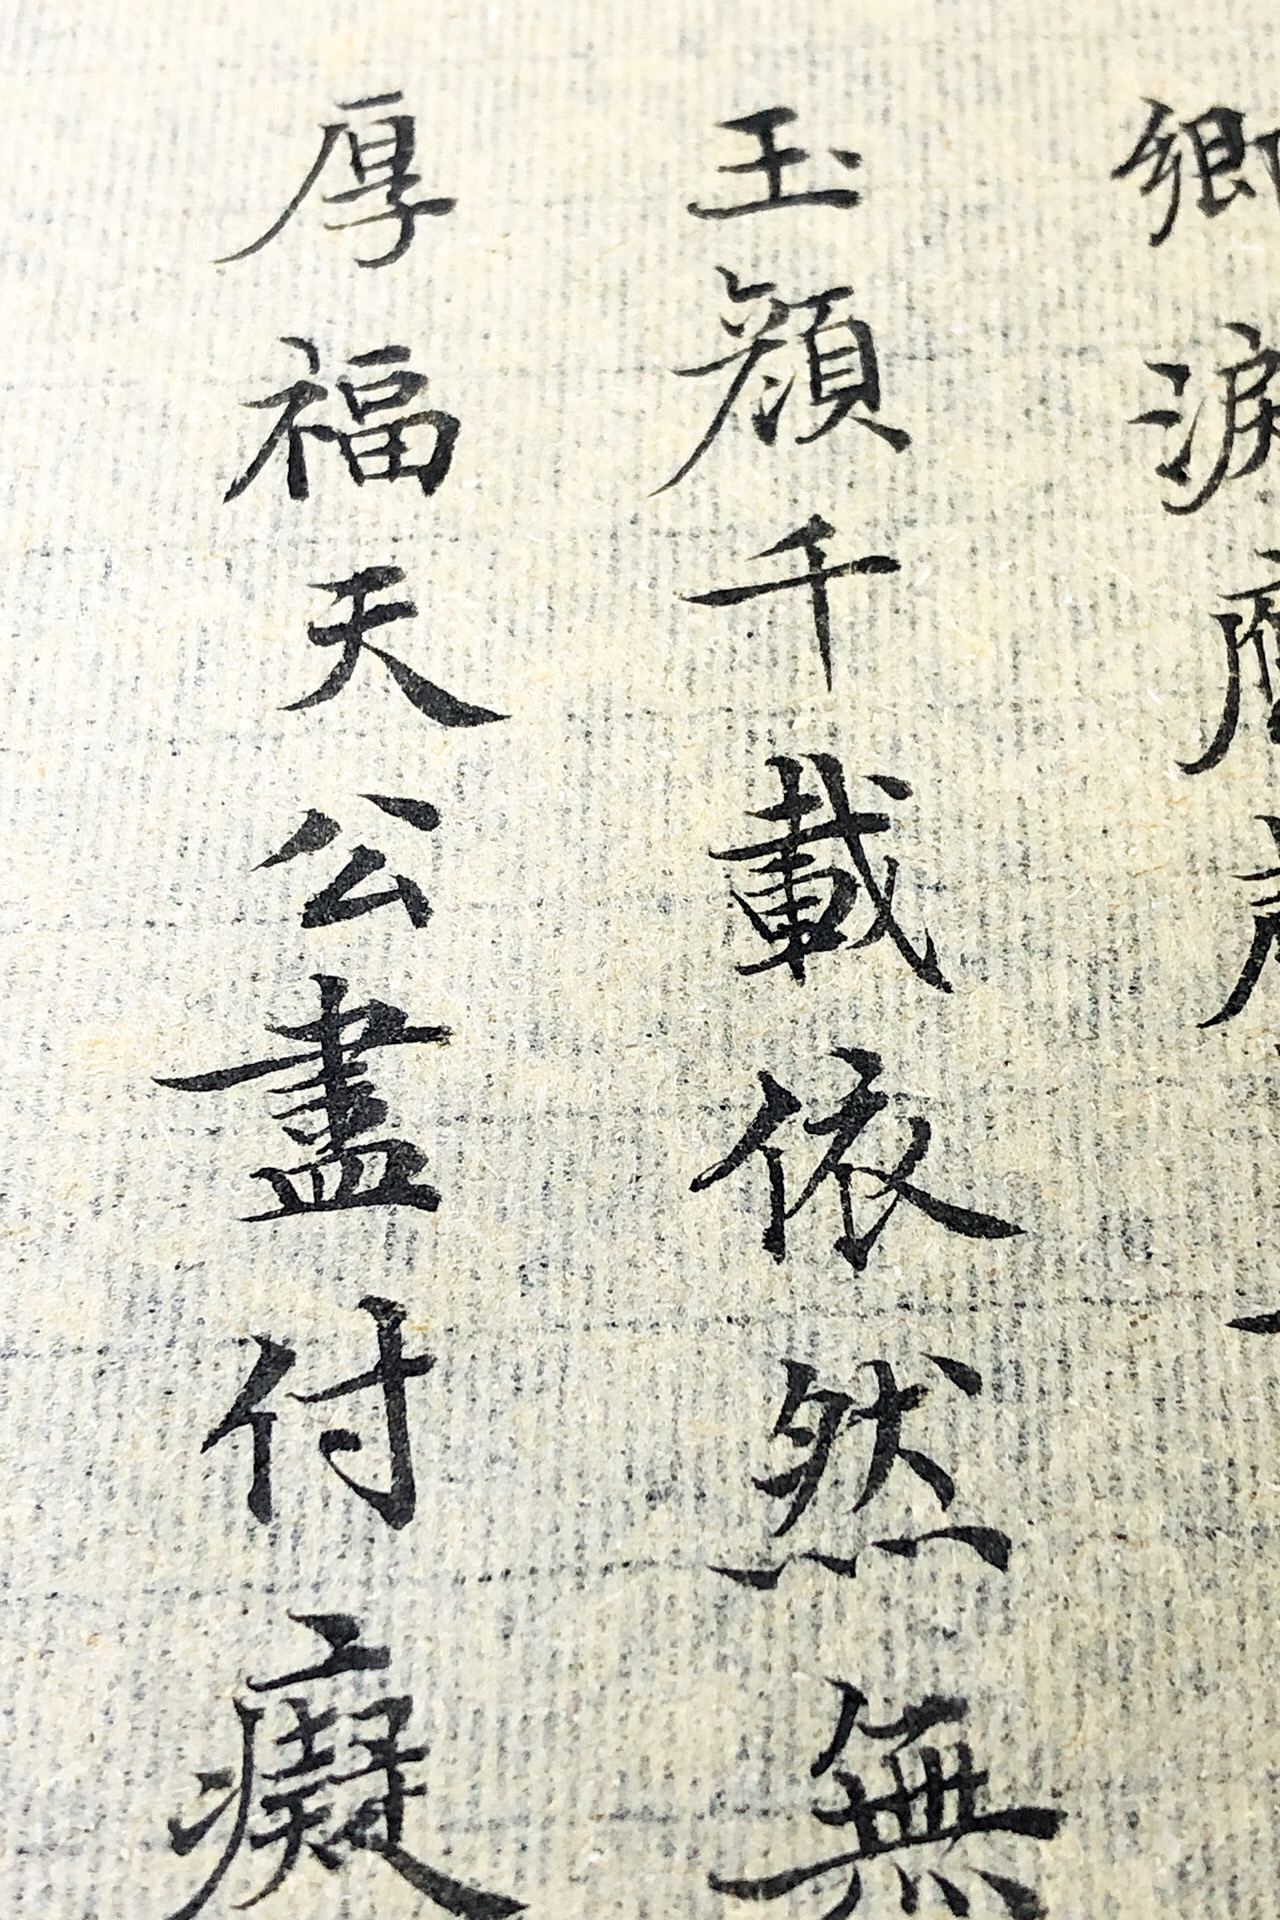 卿淚
玉顏千載依然無
厚福天公盡付癡